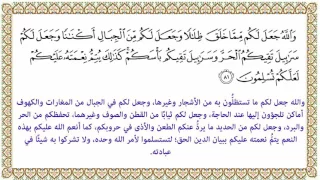 وَاللَّهُ جَعَلَ لَكُم مِّمَّا خَلَقَ ظِلَالًا وَجَعَلَ لَكُم مِّنَ الْجِبَالِ أَكْنَانًا وَجَعَلَ لَكُمْ
سَرَابِيلَ تَقِيكُمُ الْحَرَّ وَسَرَابِيلَ تَقِيكُم بَأْسَكُمْ كَذَٰلِكَ يُتِمُّ نِعْمَتَهُ عَلَيْكُمْ
لَعَلَّكُمْ تُسْلِمُونَ ٨١
والله جعل لكم ما تستظلُّون به من الأشجار وغيرها، وجعل لكم في الجبال من المغارات والكهوف
أماكن تلجؤون إليها عند الحاجة، وجعل لكم ثيابًا من القطن والصوف وغيرهما، تحفظكم من الحر
والبرد، وجعل لكم من الحديد ما يردُّ عنكم الطعن والأذى في حروبكم، كما أنعم الله عليكم بهذه
النعم يتمُّ نعمته عليكم ببيان الدين الحق؛ لتستسلموا لأمر الله وحده، ولا تشركوا به شيئًا في
عبادته.